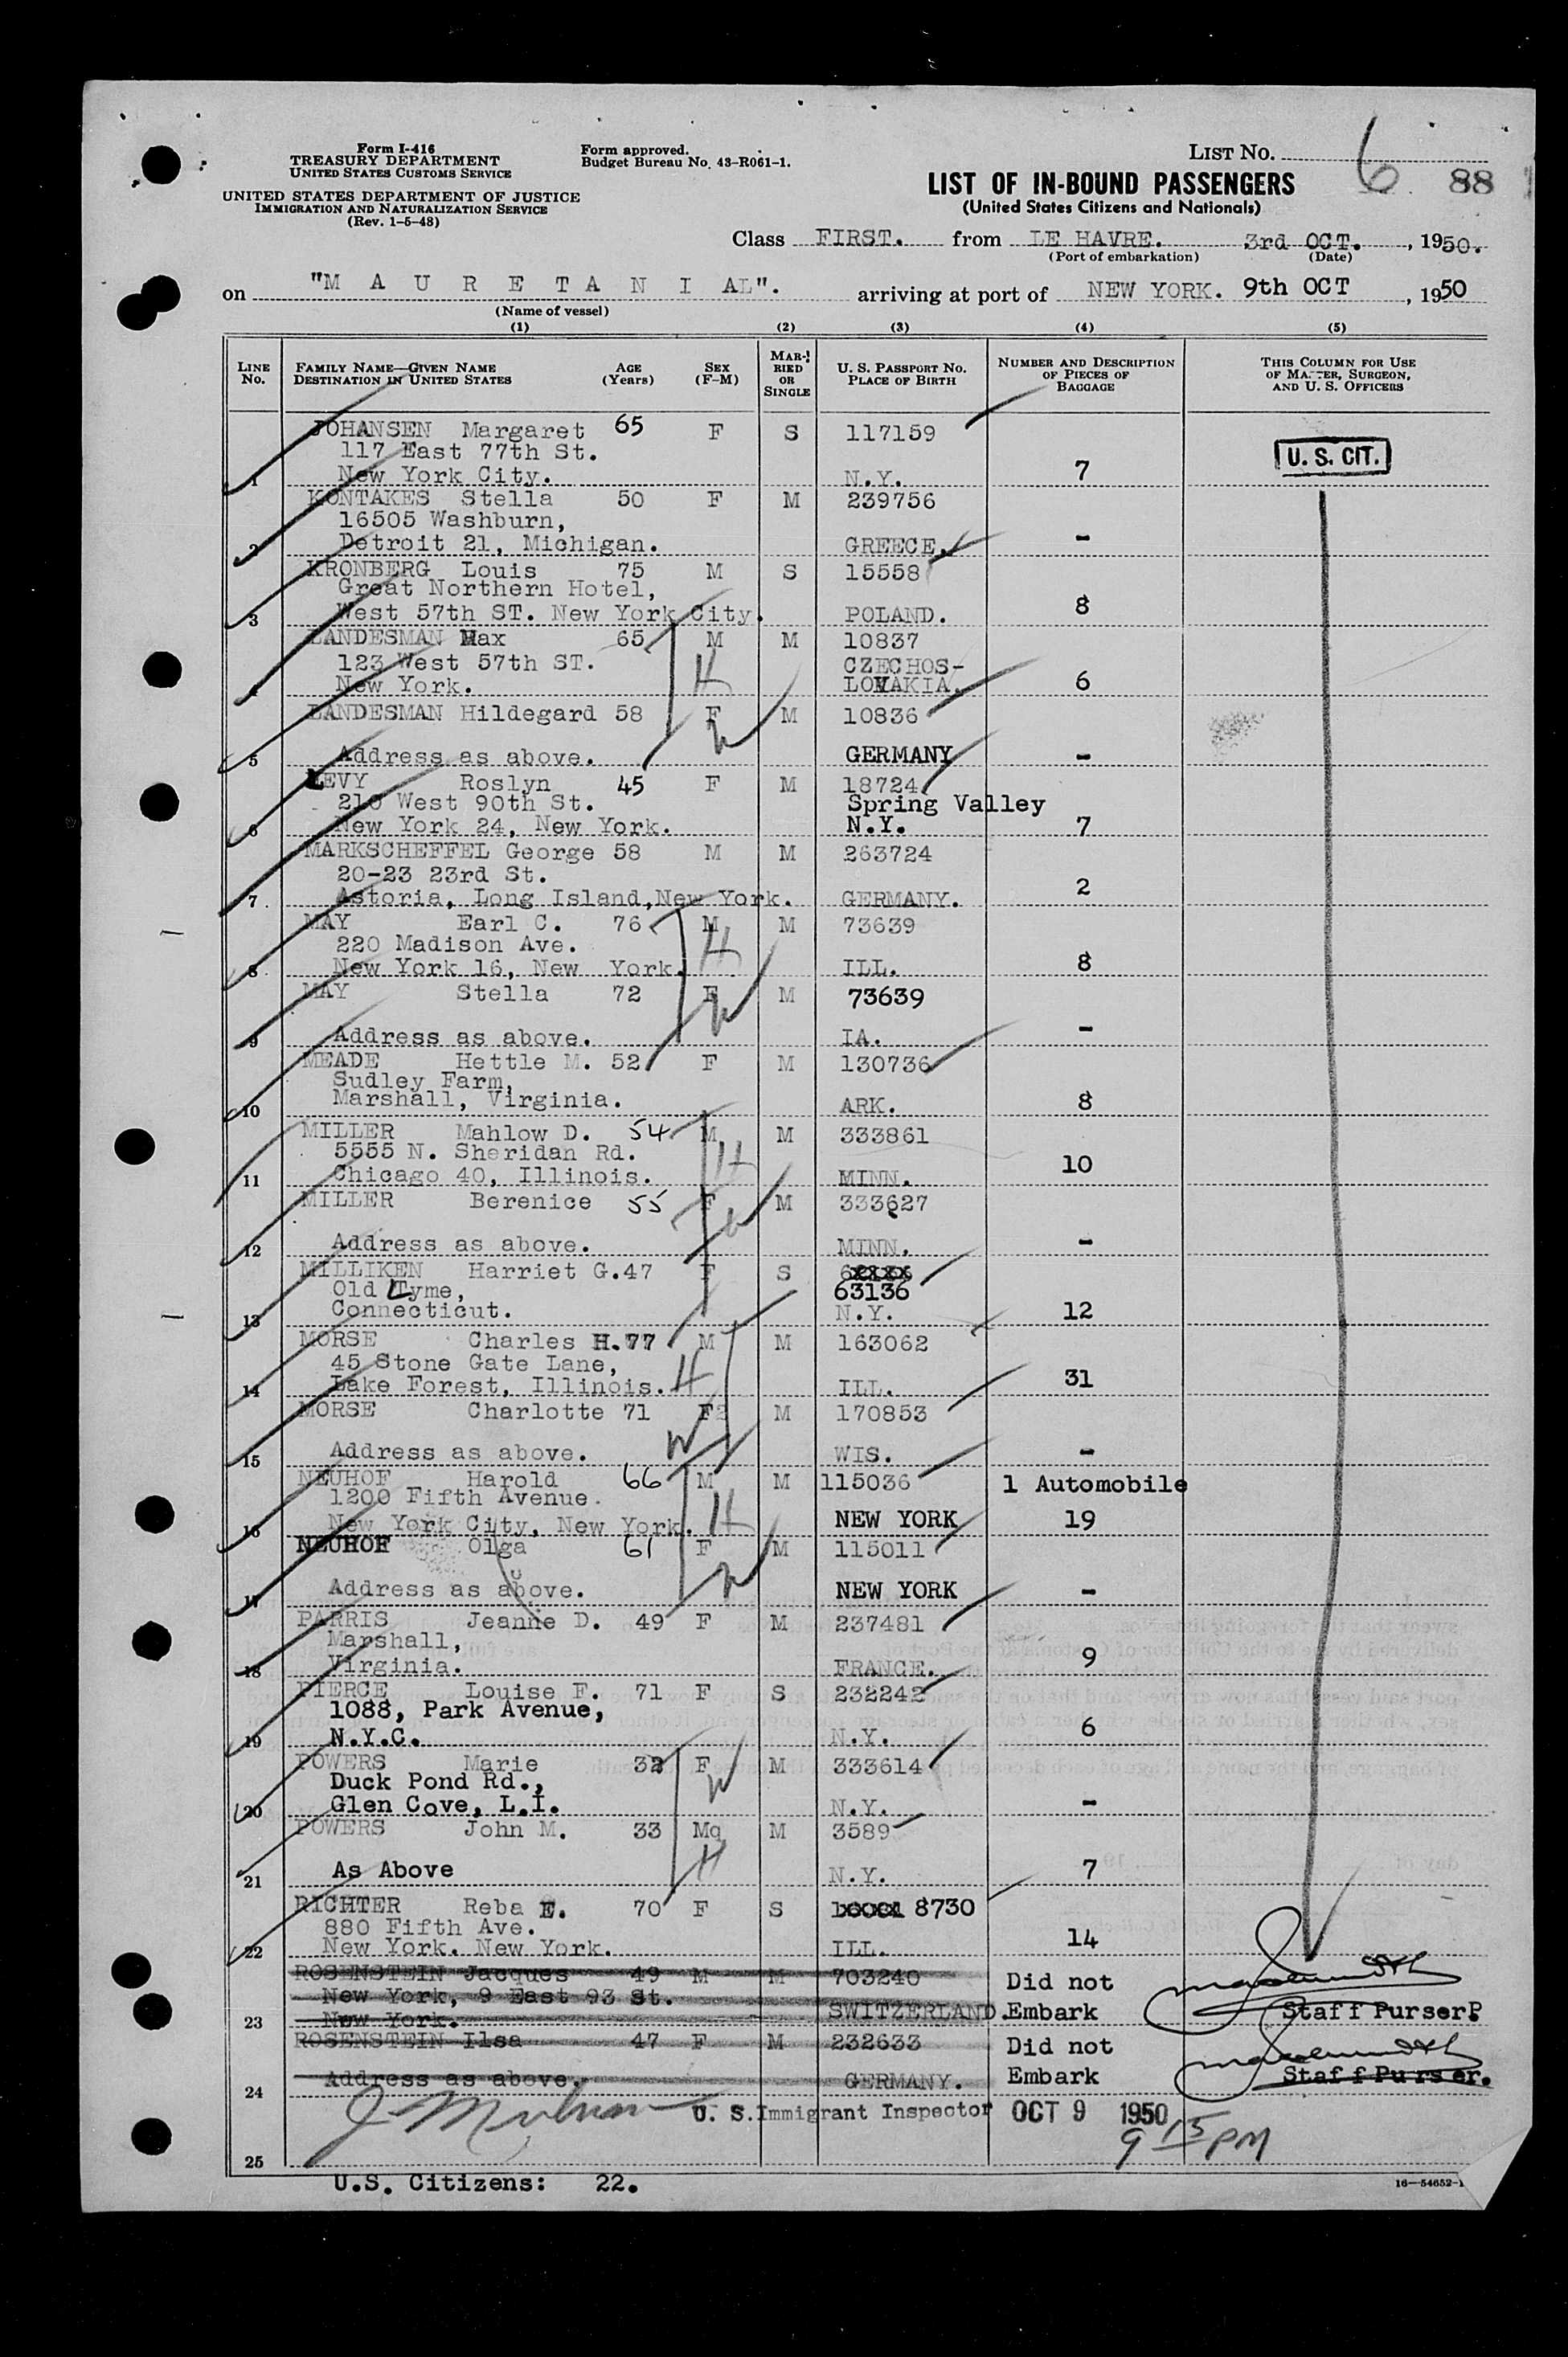 Form I-416
TREASURY DEPARTMENT
UNITED STATES CUSTOMS SERVICE
UNITED STATES DEPARTMENT OF JUSTICE
IMMIGRATION AND NATURALIZATION SERVICE
(Rev. 1-5-48)
Form approved.
Budget Bureau No. 43-R061-1.
LIST NO. 6 88
LIST OF IN-BOUND PASSENGERS
(United States Citizens and Nationals)
Class FIRST. from LE HAVRE. 3rd OCT. , 1950.
(Port of embarkation) (Date)
on "M A U R E T A N I A". arriving at port of NEW YORK. 9th OCT , 1950
(Name of vessel)
(1) (2) (3) (4) (5)
LINE No. FAMILY NAME—GIVEN NAME DESTINATION IN UNITED STATES AGE (Years) SEX (F-M) MARRIED OR SINGLE U. S. PASSPORT NO. PLACE OF BIRTH NUMBER AND DESCRIPTION OF PIECES OF BAGGAGE THIS COLUMN FOR USE OF MASTER, SURGEON, AND U. S. OFFICERS
JOHANSEN Margaret 65 F S 117159
117 East 77th St. U. S. CIT.
1 New York City. N.Y. 7
KONTAKES Stella 50 F M 239756
16505 Washburn,
2 Detroit 21, Michigan. GREECE. -
KRONBERG Louis 75 M S 15558
Great Northern Hotel,
3 West 57th ST. New York City. POLAND. 8
LANDESMAN Max 65 M M 10837
123 West 57th ST. H CZECHOS-
4 New York. LOVAKIA. 6
LANDESMAN Hildegard 58 F M 10836
W
5 Address as above. GERMANY -
LEVY Roslyn 45 F M 18724
210 West 90th St. Spring Valley
6 New York 24, New York. N.Y. 7
MARKSCHEFFEL George 58 M M 263724
20-23 23rd St.
7 Astoria, Long Island,New York. GERMANY. 2
MAY Earl C. 76 M M 73639
220 Madison Ave. H
8 New York 16, New York. ILL. 8
MAY Stella 72 F M 73639
W
9 Address as above. IA. -
MEADE Hettle M. 52 F M 130736
Sudley Farm,
10 Marshall, Virginia. ARK. 8
MILLER Mahlow D. 54 M M 333861
5555 N. Sheridan Rd. H
11 Chicago 40, Illinois. MINN. 10
MILLER Berenice 55 F M 333627
W
12 Address as above. MINN. -
MILLIKEN Harriet G. 47 F S
Old Lyme, 63136
13 Connecticut. N.Y. 12
MORSE Charles H. 77 M M 163062
45 Stone Gate Lane,
14 Lake Forest, Illinois. H ILL. 31
MORSE Charlotte 71 F M 170853
W
15 Address as above. WIS. -
NEUHOF Harold 66 M M 115036 1 Automobile
1200 Fifth Avenue.
16 New York City, New York. H NEW YORK 19
NEUHOF Olga 61 F M 115011
W
17 Address as above. NEW YORK -
PARRIS Jeanne D. 49 F M 237481
Marshall,
18 Virginia. FRANCE. 9
PIERCE Louise F. 71 F S 232242
1088, Park Avenue,
19 N.Y.C. N.Y. 6
POWERS Marie 32 F M 333614
Duck Pond Rd., W
20 Glen Cove, L.I. N.Y. -
POWERS John M. 33 M M 3589
H
21 As Above N.Y. 7
RICHTER Reba E. 70 F S 8730
880 Fifth Ave.
22 New York. New York. ILL. 14
ROSENSTEIN Jacques 49 M M 703240 Did not
New York, 9 East 93 St. SWITZERLAND. Embark Staff Purser.
23 New York.
ROSENSTEIN Ilsa 47 F M 232633 Did not
24 Address as above. GERMANY. Embark Staff Purser.
U. S. Immigrant Inspector OCT 9 1950
9 15 PM
25
U.S. Citizens: 22.
16—54652-1